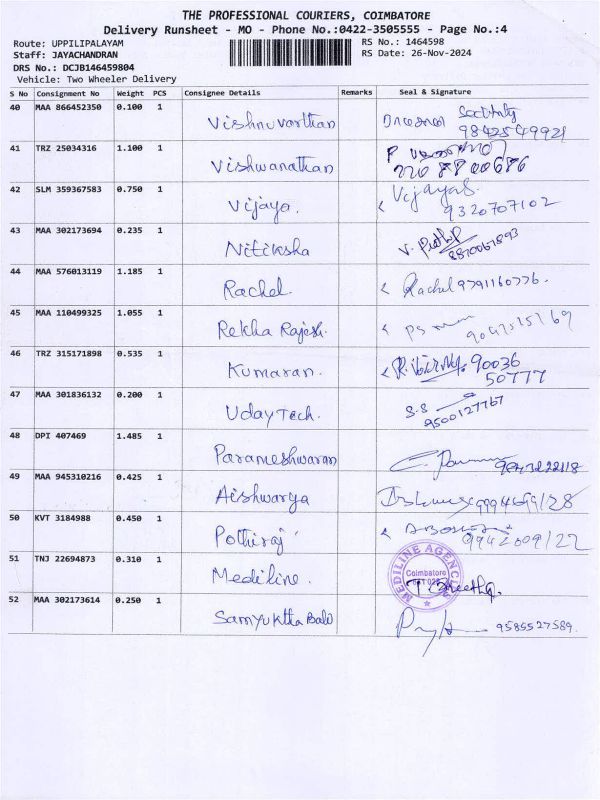 THE PROFESSIONAL COURIERS, COIMBATORE
Delivery Runsheet - MO - Phone No.:0422-3505555 - Page No.:4
Route: UPPILIPALAYAM
RS No.: 1464598
Staff: JAYACHANDRAN
RS Date: 26-Nov-2024
DRS No.: DCJB146459804
Vehicle: Two Wheeler Delivery
S No Consignment No Weight PCS Consignee Details Remarks Seal & Signature
40 MAA 866452350 0.100 1 Vishnuvarthan
9842549921
41 TRZ 25034316 1.100 1 Vishwanathan
42 SLM 359367583 0.750 1 Vijaya. Vijayas.
9320707102
43 MAA 302173694 0.235 1 Nitiksha
8870067893
44 MAA 576013119 1.185 1 Rachel. Rachel 9791160776.
45 MAA 110499325 1.055 1 Rekha Rajesh.
46 TRZ 315171898 0.535 1 Kumaran. 90036
50777
47 MAA 301836132 0.200 1 Uday Tech. S.S
9500127767
48 DPI 407469 1.485 1 Parameshwaran
49 MAA 945310216 0.425 1 Aishwarya
50 KVT 3184988 0.450 1 Pothiraj
51 TNJ 22694873 0.310 1 Mediline. MEDILINE AGENCIES
Coimbatore
52 MAA 302173614 0.250 1 Samyuktha Bala 9585527589.